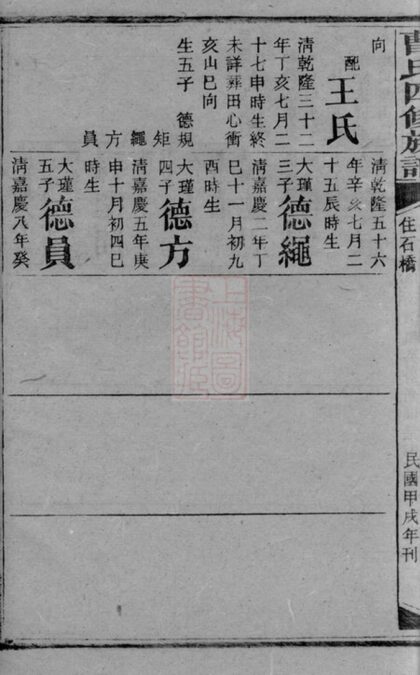 曹氏四修族譜
住石橋
民國甲戌年刊
向
配王氏
清乾隆三十二
年丁亥七月二
十七申時生終
未詳葬田心衝
亥山巳向
生五子 德規
矩
繩
方
員
清乾隆五十六
年辛亥七月二
十五辰時生
大瑾
三子
德繩
清嘉慶二年丁
巳十一月初九
酉時生
大瑾
四子
德方
清嘉慶五年庚
申十月初四巳
時生
大瑾
五子
德員
清嘉慶八年癸
上海圖
書館藏